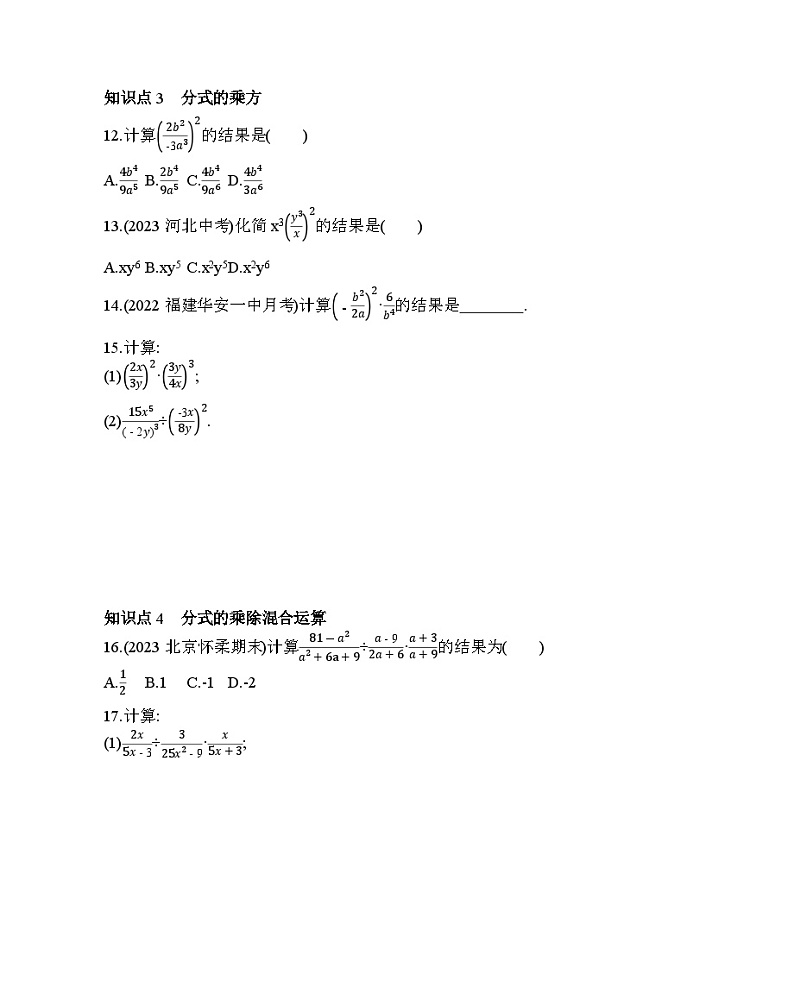 知识点 3 分式的乘方
12.计算(2b²/-3a³)²的结果是( )
A.4b⁴/9a⁵ B.2b⁴/9a⁵ C.4b⁴/9a⁶ D.4b⁴/3a⁶
13.(2023 河北中考)化简 x³(y³/x)²的结果是( )
A.xy⁶ B.xy⁵ C.x²y⁵D.x²y⁶
14.(2022 福建华安一中月考)计算(-b²/2a)²·6/b⁴的结果是________.
15.计算:
(1)(2x/3y)²·(3y/4x)³;
(2)15x⁵/(-2y)³÷(-3x/8y)².
知识点 4 分式的乘除混合运算
16.(2023 北京怀柔期末)计算(81-a²)/(a²+6a+9)÷(a-9)/(2a+6)·(a+3)/(a+9)的结果为( )
A.1/2 B.1 C.-1 D.-2
17.计算:
(1)2x/(5x-3)÷3/(25x²-9)·x/(5x+3);